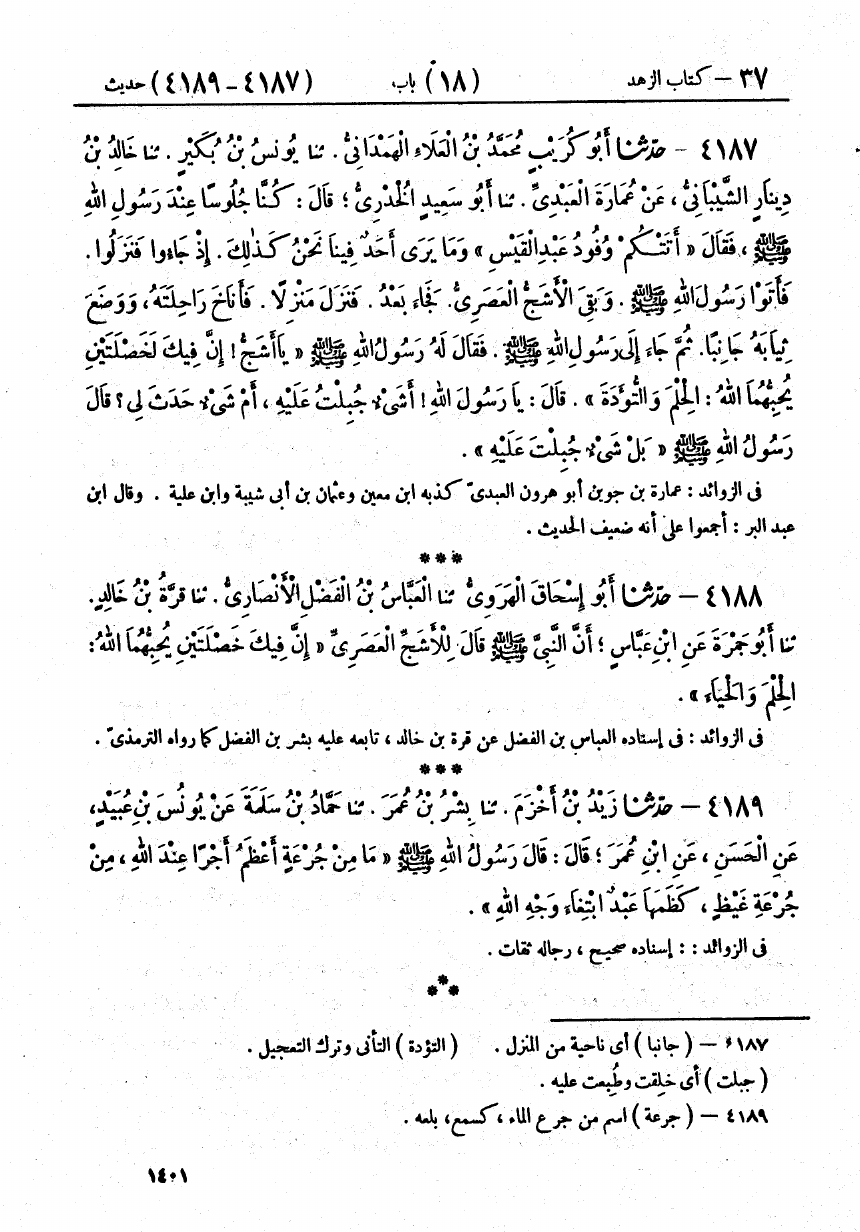 ٣٧ – كتاب الزهد (١٨) باب، (٤١٨٧ – ٤١٨٩) حديث
٤١٨٧ – حدّثنا أَبُو كُرَيْبٍ مُحَمَّدُ بْنُ الْعَلَاءِ الْهَمْدَانِىُّ. ثنا يُونسُ بْنُ بُكَيْرٍ. ثنا خَالِدُ بْنُ
دِينَارٍ الشَّيْبَانِىُّ، عَنْ عُمَارَةَ الْعَبْدِىِّ. ثنا أَبُو سَعِيدٍ الْخُدْرِىُّ؛ قَالَ: كُنَّا جُلُوسًا عِنْدَ رَسُولِ اللهِ
ﷺ، فَقَالَ « أَتَتْكُمْ وُفُودُ عَبْدِ الْقَيْسِ » وَمَا يَرَى أَحَدٌ فِينَا نَحْنُ كَذٰلِكَ. إِذْ جَاءُوا فَنَزَلُوا.
فَأَتَوْا رَسُولَ اللهِ ﷺ. وَبَقِىَ الْأَشَجُّ الْعَصَرِىُّ. فَجَاءَ بَعْدُ. فَنَزَلَ مَنْزِلًا. فَأَنَاخَ رَاحِلَتَهُ، وَوَضَعَ
ثِيَابَهُ جَانِبًا. ثُمَّ جَاءَ إِلَى رَسُولِ اللهِ ﷺ. فَقَالَ لَهُ رَسُولُ اللهِ ﷺ « يَا أَشَجُّ! إِنَّ فِيكَ لَخَصْلَتَيْنِ
يُحِبُّهُمَا اللهُ: الْحِلْمَ وَالتُّؤَدَةَ ». قَالَ: يَا رَسُولَ اللهِ! أَشَىْءٌ جُبِلْتُ عَلَيْهِ، أَمْ شَىْءٌ حَدَثَ لِى؟ قَالَ
رَسُولُ اللهِ ﷺ « بَلْ شَىْءٌ جُبِلْتَ عَلَيْهِ ».
فى الزوائد: عمارة بن جوين أبو هرون العبدىّ كذبه ابن معين وعثمان بن أبى شيبة وابن علية. وقال ابن
عبد البر: أجمعوا على أنه ضعيف الحديث.
***
٤١٨٨ – حدّثنا أَبُو إِسْحَاقَ الْهَرَوِىُّ ثنا الْعَبَّاسُ بْنُ الْفَضْلِ الْأَنْصَارِىُّ. ثنا قُرَّةُ بْنُ خَالِدٍ.
ثنا أَبُو جَمْرَةَ عَنِ ابْنِ عَبَّاسٍ؛ أَنَّ النَّبِىَّ ﷺ قَالَ لِلْأَشَجِّ الْعَصَرِىِّ « إِنَّ فِيكَ خَصْلَتَيْنِ يُحِبُّهُمَا اللهُ:
الْحِلْمَ وَالْحَيَاءَ ».
فى الزوائد: فى إسناده العباس بن الفضل عن قرة بن خالد، تابعه عليه بشر بن الفضل كما رواه الترمذىّ.
***
٤١٨٩ – حدّثنا زَيْدُ بْنُ أَخْزَمَ. ثنا بِشْرُ بْنُ عُمَرَ. ثنا حَمَّادُ بْنُ سَلَمَةَ عَنْ يُونُسَ بْنِ عُبَيْدٍ،
عَنِ الْحَسَنِ، عَنِ ابْنِ عُمَرَ؛ قَالَ: قَالَ رَسُولُ اللهِ ﷺ « مَا مِنْ جُرْعَةٍ أَعْظَمُ أَجْرًا عِنْدَ اللهِ، مِنْ
جُرْعَةِ غَيْظٍ، كَظَمَهَا عَبْدٌ ابْتِغَاءَ وَجْهِ اللهِ ».
فى الزوائد: : إسناده صحيح، رجاله ثقات.
***
٤١٨٧ – (جانبا) أى ناحية من المنزل. (التؤدة) التأنى وترك التعجيل.
(جبلت) أى خلِقت وطُبِعت عليه.
٤١٨٩ – (جرعة) اسم من جرع الماء، كسمع، بلعه.
١٤٠١